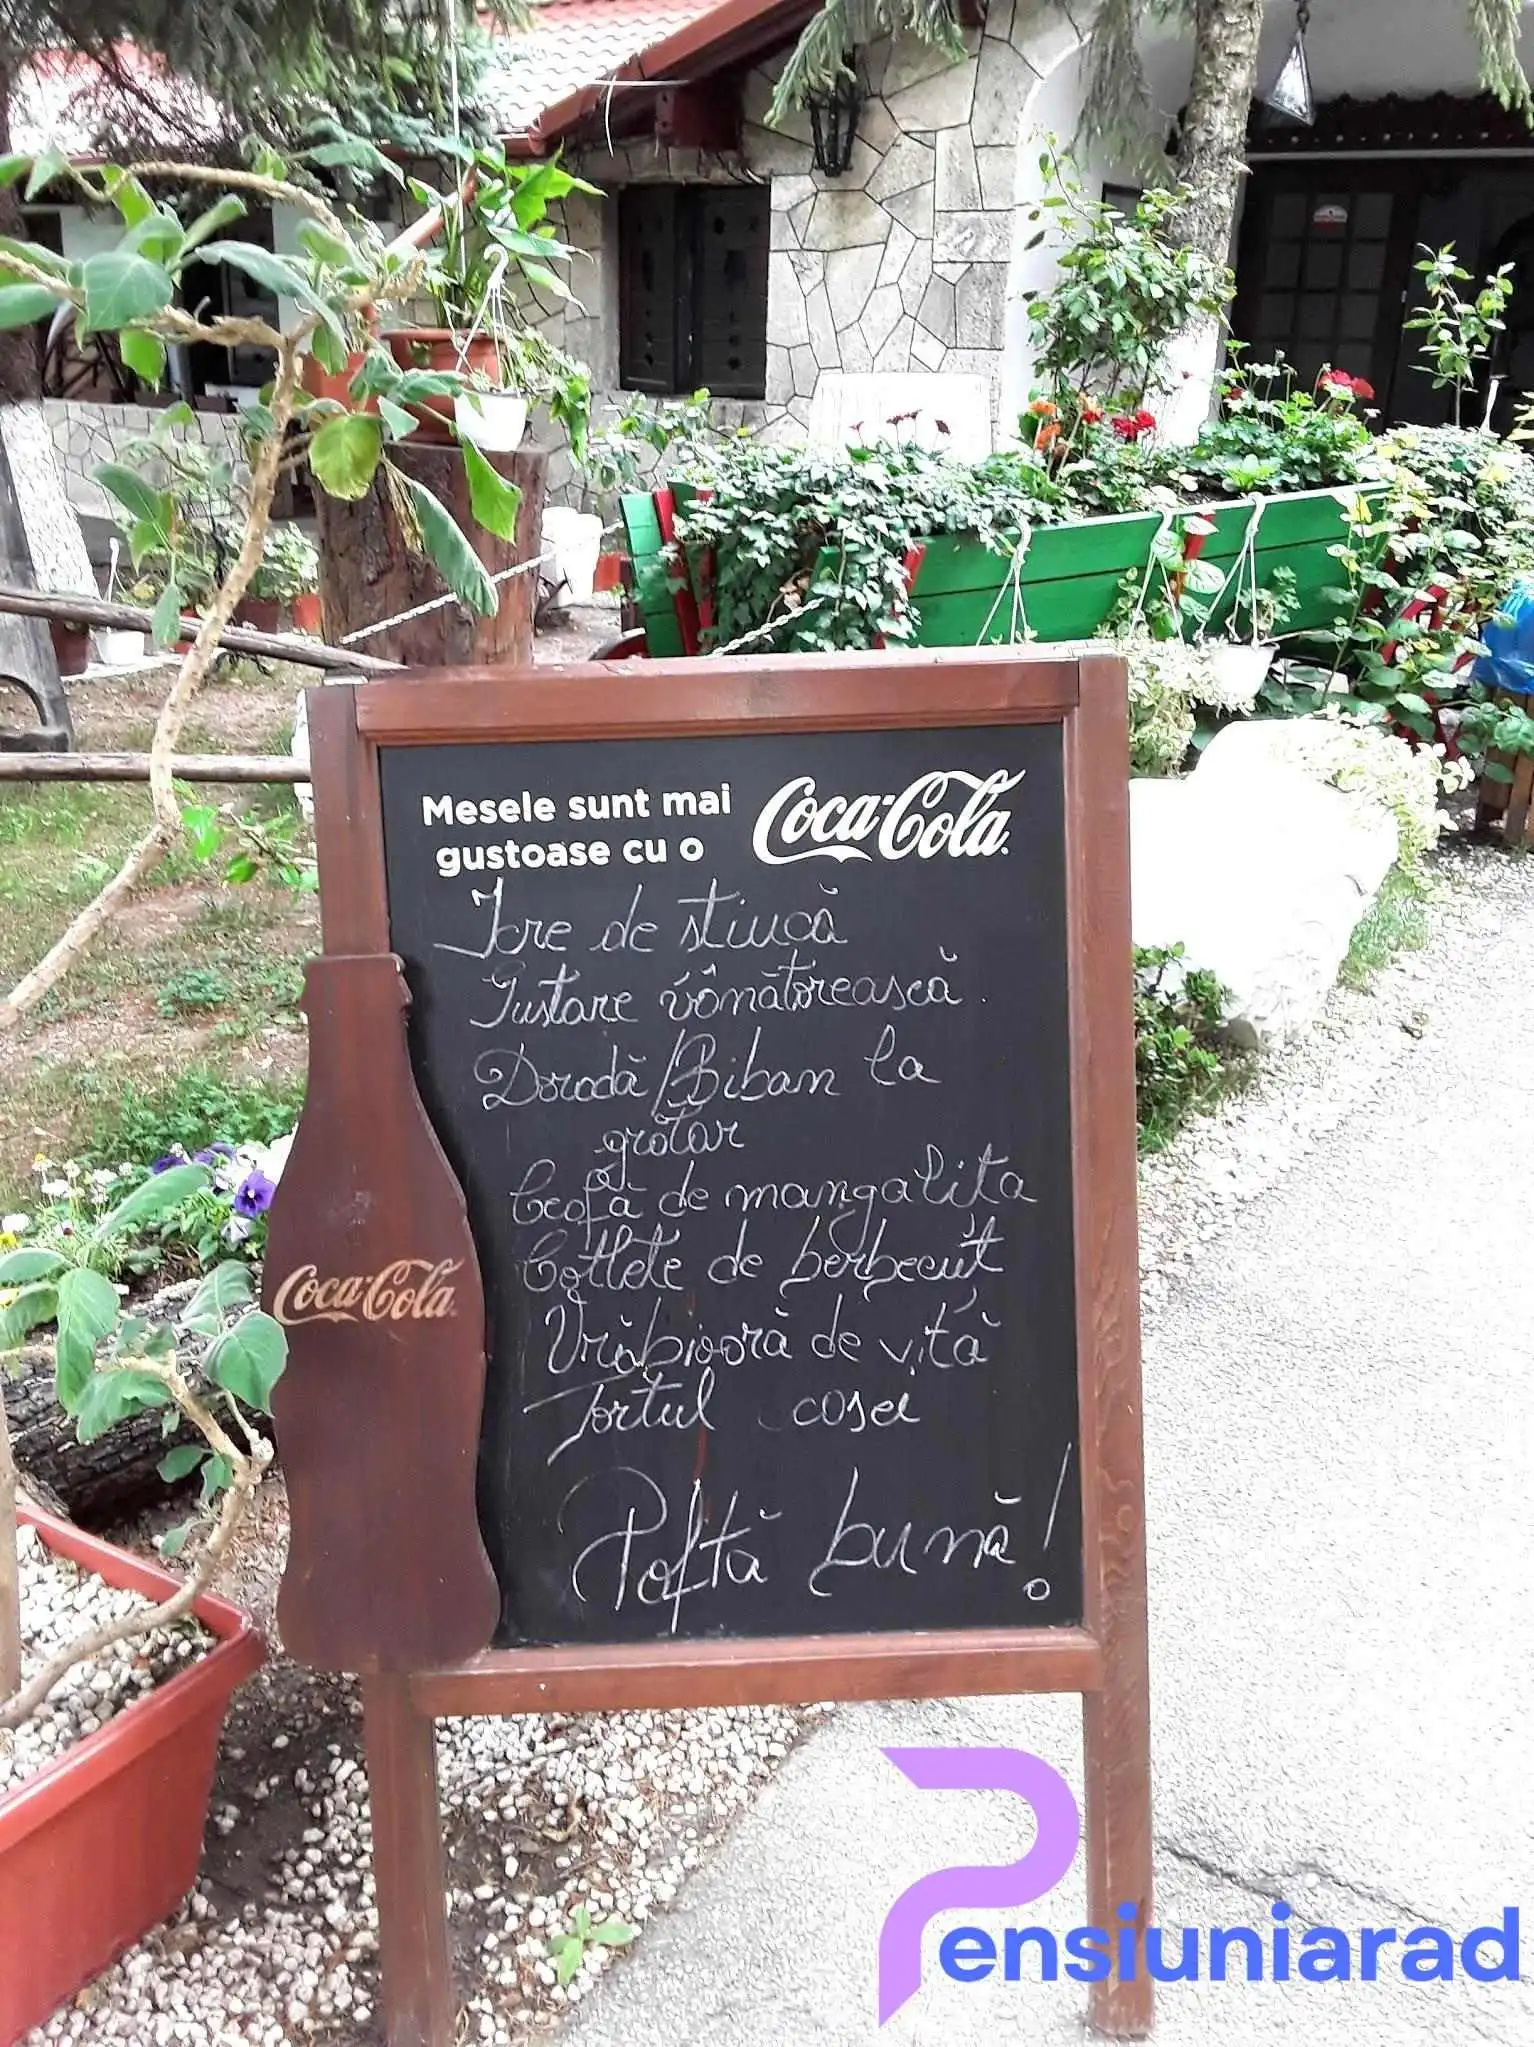 Mesele sunt mai
gustoase cu o
Coca-Cola
Icre de știucă
Gustare vânătorească
Doradă/Biban la
grătar
Ceafă de mangalița
Cotlete de berbecuț
Vrăbioară de vită
Tortul casei
Poftă bună!
Coca-Cola
Pensiuniarad